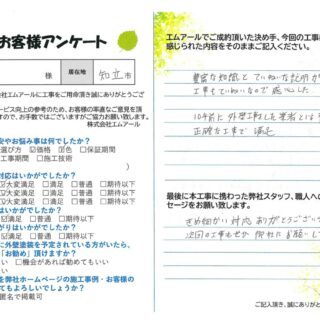 お客様アンケート
様
居住地
知立市
会社エムアールに工事をご用命頂き誠にありがとうござ
ービス向上の参考のため、お客様の率直なご意見を頂
すので、とてもお手数おかけますがご協力お願い致します。
株式会社エムアール
安やお悩み事は何でしたか?
選び方 ☑価格 ☑色 □保証期間
工事期間 □施工技術
対応はいかがでしたか?
☑大変満足 □満足 □普通 □期待以下
はいかがでしたか?
大変満足 □満足 □普通 □期待以下
がりはいかがでしたか?
大変満足 □満足 □普通 □期待以下
に外壁塗装を予定されている方がいたら、
「お勧め」頂けますか?
い □機会があれば勧めてもいい
い
を弊社ホームページの施工事例・お客様の
てもよろしいでしょうか?
匿名で掲載可
エムアールでご成約頂いた決め手、今回の工事に
感じられた内容をそのままご記入ください。
豊富な知識と ていねいな説明が
工事もていねいなので 感心した
10年前に外壁工事した業者とは
正確な工事で 満足
最後に本工事に携わった弊社スタッフ、職人への
セージをお願い致します。
きめ細かい対応 ありがとうござい
次回の工事もぜひ 御社にお願いし
ご記入頂き、誠にありがと